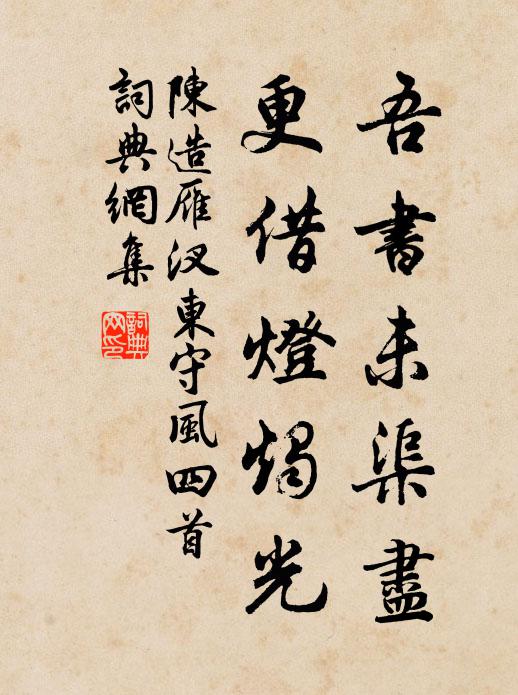 吾書未渠盡
更借燈燭光
陳造雁汊東守風四首
詞典網集
詞典網印